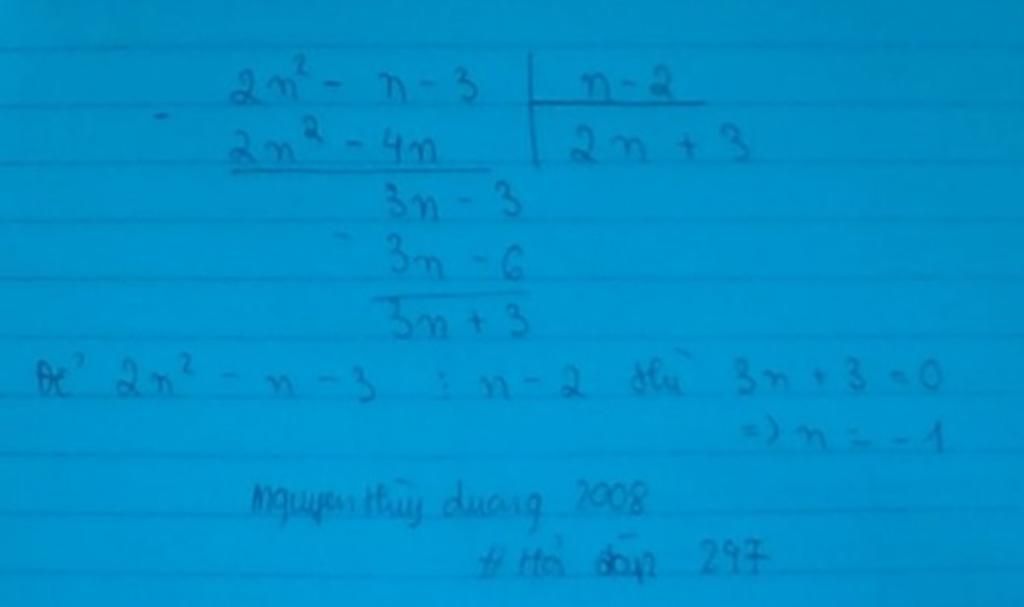 2n² - n - 3 | n - 2
- 2n² - 4n | 2n + 3
3n - 3
- 3n - 6
3n + 3
Để 2n² - n - 3 ⋮ n - 2 thì 3n + 3 = 0
=> n = -1
Nguyen thùy duong 2008
# Hỏi đáp 247